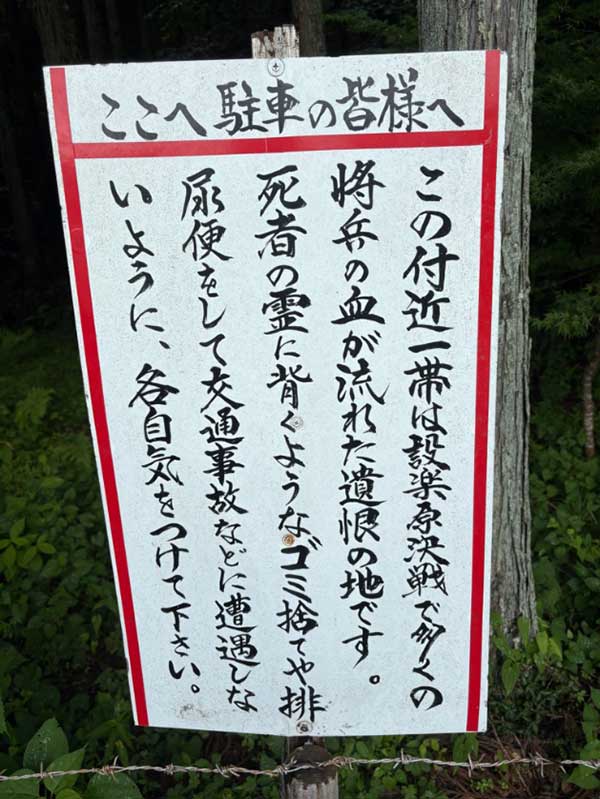 ここへ駐車の皆様へ
この付近一帯は設楽原決戦で多くの
将兵の血が流れた遺恨の地です。
死者の霊に背くようなゴミ捨てや排
尿便をして交通事故などに遭遇しな
いように、各自気をつけて下さい。